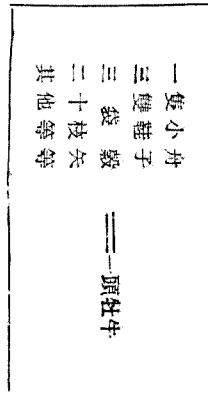 一隻小舟
三雙鞋子
三袋穀
二十枝矢
其他等等
＝一頭牡牛